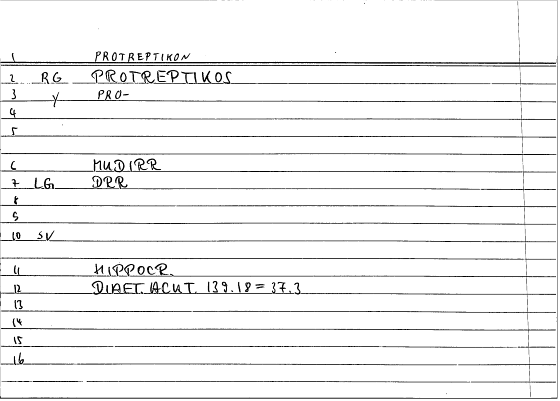 1 PROTREPTIKON
2 RG PROTREPTIKOS
3 Y PRO-
4
5
6 MUDIRR
7 LG DRR
8
9
10 SV
11 HIPPOCR.
12 DIAET. ACUT. 139.18 = 37.3
13
14
15
16